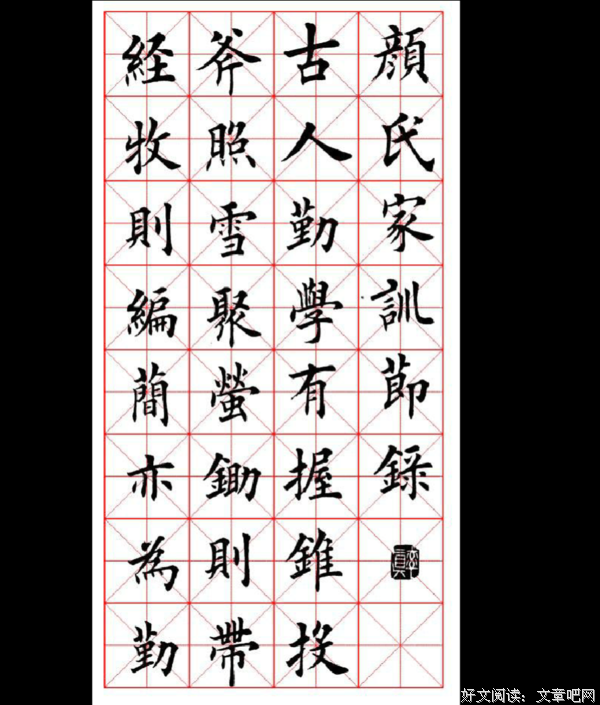 顔氏家訓節録
古人勤學有握錐投
斧照雪聚螢鋤則帶
経牧則編蕳亦為勤
好文阅读：文章吧网